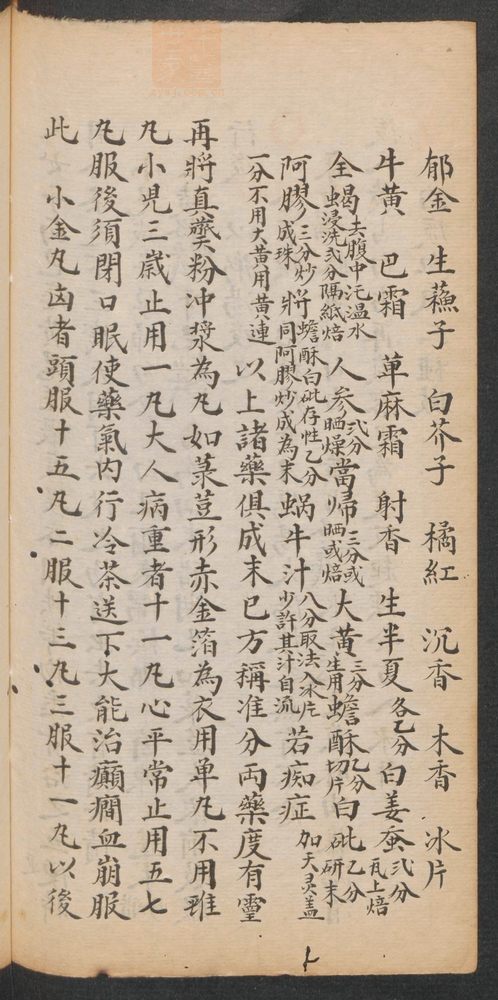 郁金 生蘓子 白芥子 橘紅 沉香 木香 冰片
牛黄 巴霜 萆麻霜 射香 生半夏各乙分 白姜蚕弍分瓦上焙
全蝎去腹中汚温水蝕浸洗弍分隔紙焙 人参弍分晒燥 當帰三分或晒或焙 大黄三分生用 蟾酥乙分切片 白砒乙分研末
阿膠三分炒成珠 將蟾酥白砒存性乙分將同阿膠炒成為末 蝸牛汁八分取法入冰片少許其汁自流 若痴症加天灵盖
一分不用大黄用黄連 以上諸藥俱成末已方稱准分両藥度有靈
再將真虁粉冲漿為丸如菉荳形赤金箔為衣用单丸不用雅
丸小児三歳止用一丸大人病重者十一丸心平常止用五七
丸服後須閉口眠使藥氣内行冷茶送下大能治癲癇血崩服
此 小金丸卤者頭服十五丸二服十三丸三服十一丸以後